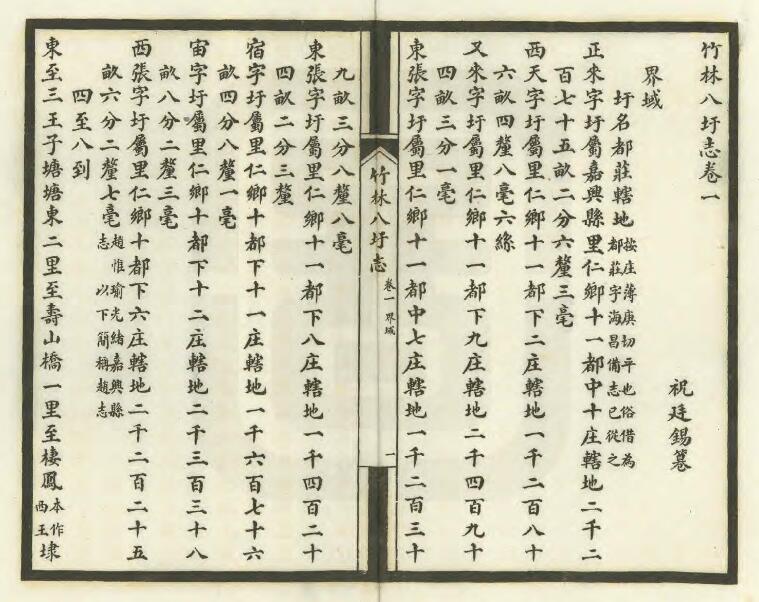 竹林八圩志卷一
祝廷錫纂
界域
圩名都莊轄地按庄薄庚切平也俗借為都莊字海昌備志已從之
正來字圩屬嘉興縣里仁鄉十一都中十庄轄地二千二
百七十五畝二分六釐三毫
西天字圩屬里仁鄉十一都下二庄轄地一千二百八十
六畝四釐八毫六絲
又來字圩屬里仁鄉十一都下九庄轄地二千四百九十
四畝三分一毫
東張字圩屬里仁鄉十一都中七庄轄地一千二百三十
竹林八圩志
卷一 界域
一
九畝三分八釐八毫
東張字圩屬里仁鄉十一都下八庄轄地一千四百二十
四畝二分三釐
宿字圩屬里仁鄉十都下十一庄轄地一千六百七十六
畝四分八釐一毫
宙字圩屬里仁鄉十都下十二庄轄地二千三百三十八
畝八分二釐三毫
西張字圩屬里仁鄉十都下六庄轄地二千二百二十五
畝六分二釐七毫趙惟瑜光緒嘉興縣志 以下簡稱趙志
四至八到
東至三王子塘塘東二里至壽山橋一里至棲鳳本作西王埭